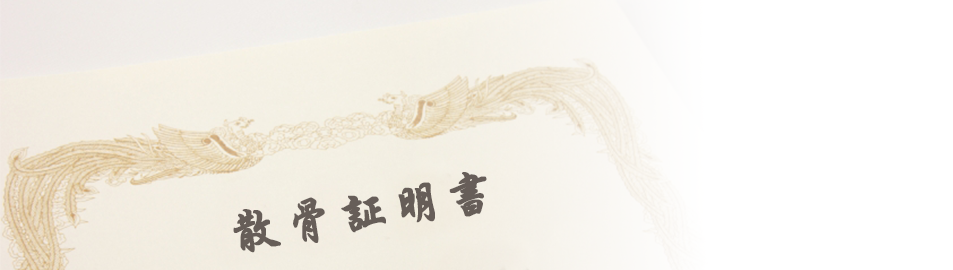 散骨証明書